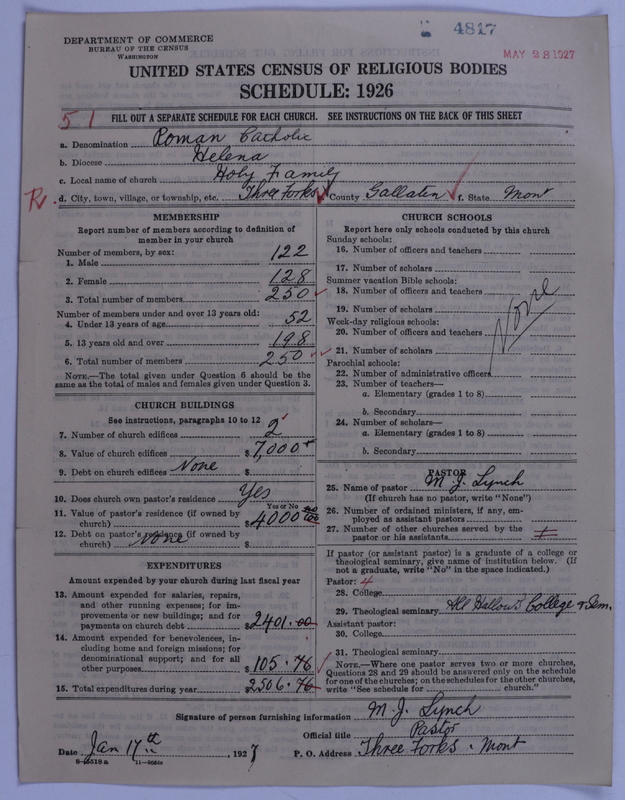 4817
MAY 28 1927
DEPARTMENT OF COMMERCE
BUREAU OF THE CENSUS
WASHINGTON
UNITED STATES CENSUS OF RELIGIOUS BODIES
SCHEDULE: 1926
51
FILL OUT A SEPARATE SCHEDULE FOR EACH CHURCH. SEE INSTRUCTIONS ON THE BACK OF THIS SHEET
a. Denomination Roman Catholic
b. Diocese Helena
c. Local name of church Holy Family
d. City, town, village, or township, etc. Three Forks County Gallaten f. State Mont
MEMBERSHIP
Report number of members according to definition of
member in your church
Number of members, by sex:
1. Male 122
2. Female 128
3. Total number of members 250
Number of members under and over 13 years old:
4. Under 13 years of age 52
5. 13 years old and over 198
6. Total number of members 250
NOTE.—The total given under Question 6 should be
same as the total of males and females given under Question 3.
CHURCH BUILDINGS
See instructions, paragraphs 10 to 12
7. Number of church edifices 2
8. Value of church edifices $ 7,000
9. Debt on church edifices None $
10. Does church own pastor's residence Yes
Yes or No
11. Value of pastor's residence (if owned by
church) $ 4000
12. Debt on pastor's residence (if owned by
church) None $
EXPENDITURES
Amount expended by your church during last fiscal year
13. Amount expended for salaries, repairs,
and other running expenses; for im-
provements or new buildings; and for
payments on church debt $ 2401.00
14. Amount expended for benevolences, in-
cluding home and foreign missions; for
denominational support; and for all
other purposes $ 105.76
15. Total expenditures during year $ 2506.76
CHURCH SCHOOLS
Report here only schools conducted by this church
Sunday schools:
16. Number of officers and teachers
17. Number of scholars
Summer vacation Bible schools:
18. Number of officers and teachers
19. Number of scholars
None
Week-day religious schools:
20. Number of officers and teachers
21. Number of scholars
Parochial schools:
22. Number of administrative officers
23. Number of teachers—
a. Elementary (grades 1 to 8)
b. Secondary
24. Number of scholars—
a. Elementary (grades 1 to 8)
b. Secondary
PASTOR
25. Name of pastor M. J. Lynch
(If church has no pastor, write "None")
26. Number of ordained ministers, if any, em-
ployed as assistant pastors
27. Number of other churches served by the
pastor or his assistants
If pastor (or assistant pastor) is a graduate of a college or
theological seminary, give name of institution below. (If
not a graduate, write "No" in the space indicated.)
Pastor: 4
28. College
29. Theological seminary All Hallows College & Sem.
Assistant pastor:
30. College
31. Theological seminary
NOTE.—Where one pastor serves two or more churches,
Questions 28 and 29 should be answered only on the schedule
for one of the churches; on the schedules for the other churches,
write "See schedule for church."
Signature of person furnishing information M. J. Lynch
Official title Pastor
Date Jan 17th, 1927 P. O. Address Three Forks . Mont